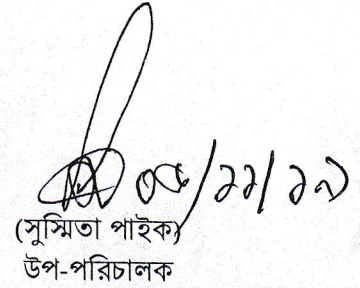 ০৫/১১/১৯
(সুস্মিতা পাইক)
উপ-পরিচালক